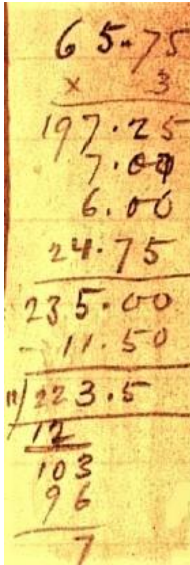 65.75
x 3
197.25
7.00
6.00
24.75
235.00
- 11.50
12/223.5
12
103
96
7